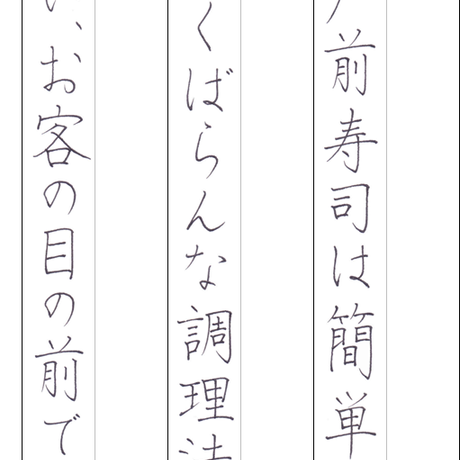 前寿司は簡単
くばらんな調理法
、お客の目の前で